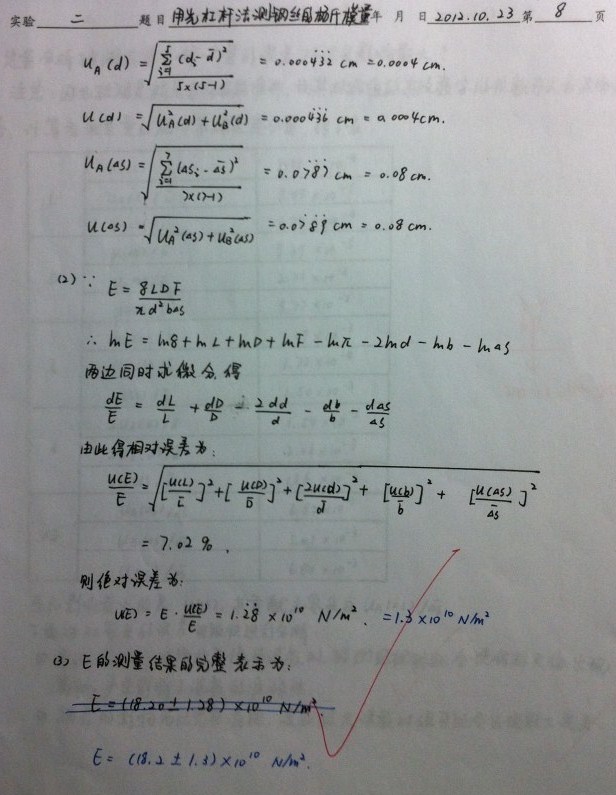 实验 二 题目 用光杠杆法测钢丝的杨氏模量 年 月 日 2012.10.23 第 8 页
u_A(d) = √(∑_{i=1}^{5}(d_i - d̄)² / 5×(5-1)) = 0.000432 cm = 0.0004 cm.
u(d) = √(u_A²(d) + u_B²(d)) = 0.000436 cm = 0.0004 cm.
u_A(Δs) = √(∑_{i=1}^{7}(Δs_i - Δs̄)² / 7×(7-1)) = 0.0787 cm = 0.08 cm.
u(Δs) = √(u_A²(Δs) + u_B²(Δs)) = 0.0789 cm = 0.08 cm.
(2) ∵ E = 8LDF / πd²bΔs
∴ lnE = ln8 + lnL + lnD + lnF - lnπ - 2lnd - lnb - lnΔs
两边同时求微分,得
dE/E = dL/L + dD/D - 2dd/d - db/b - dΔs/Δs
由此得相对误差为:
u(E)/E = √([u(L)/L̄]² + [u(D)/D̄]² + [2u(d)/d̄]² + [u(b)/b̄]² + [u(Δs)/Δs̄]²)
= 7.02 %.
则绝对误差为:
u(E) = E · u(E)/E = 1.28 × 10¹⁰ N/m². = 1.3 × 10¹⁰ N/m²
(3) E的测量结果的完整表示为:
E = (18.20 ± 1.28) × 10¹⁰ N/m²
E = (18.2 ± 1.3) × 10¹⁰ N/m².